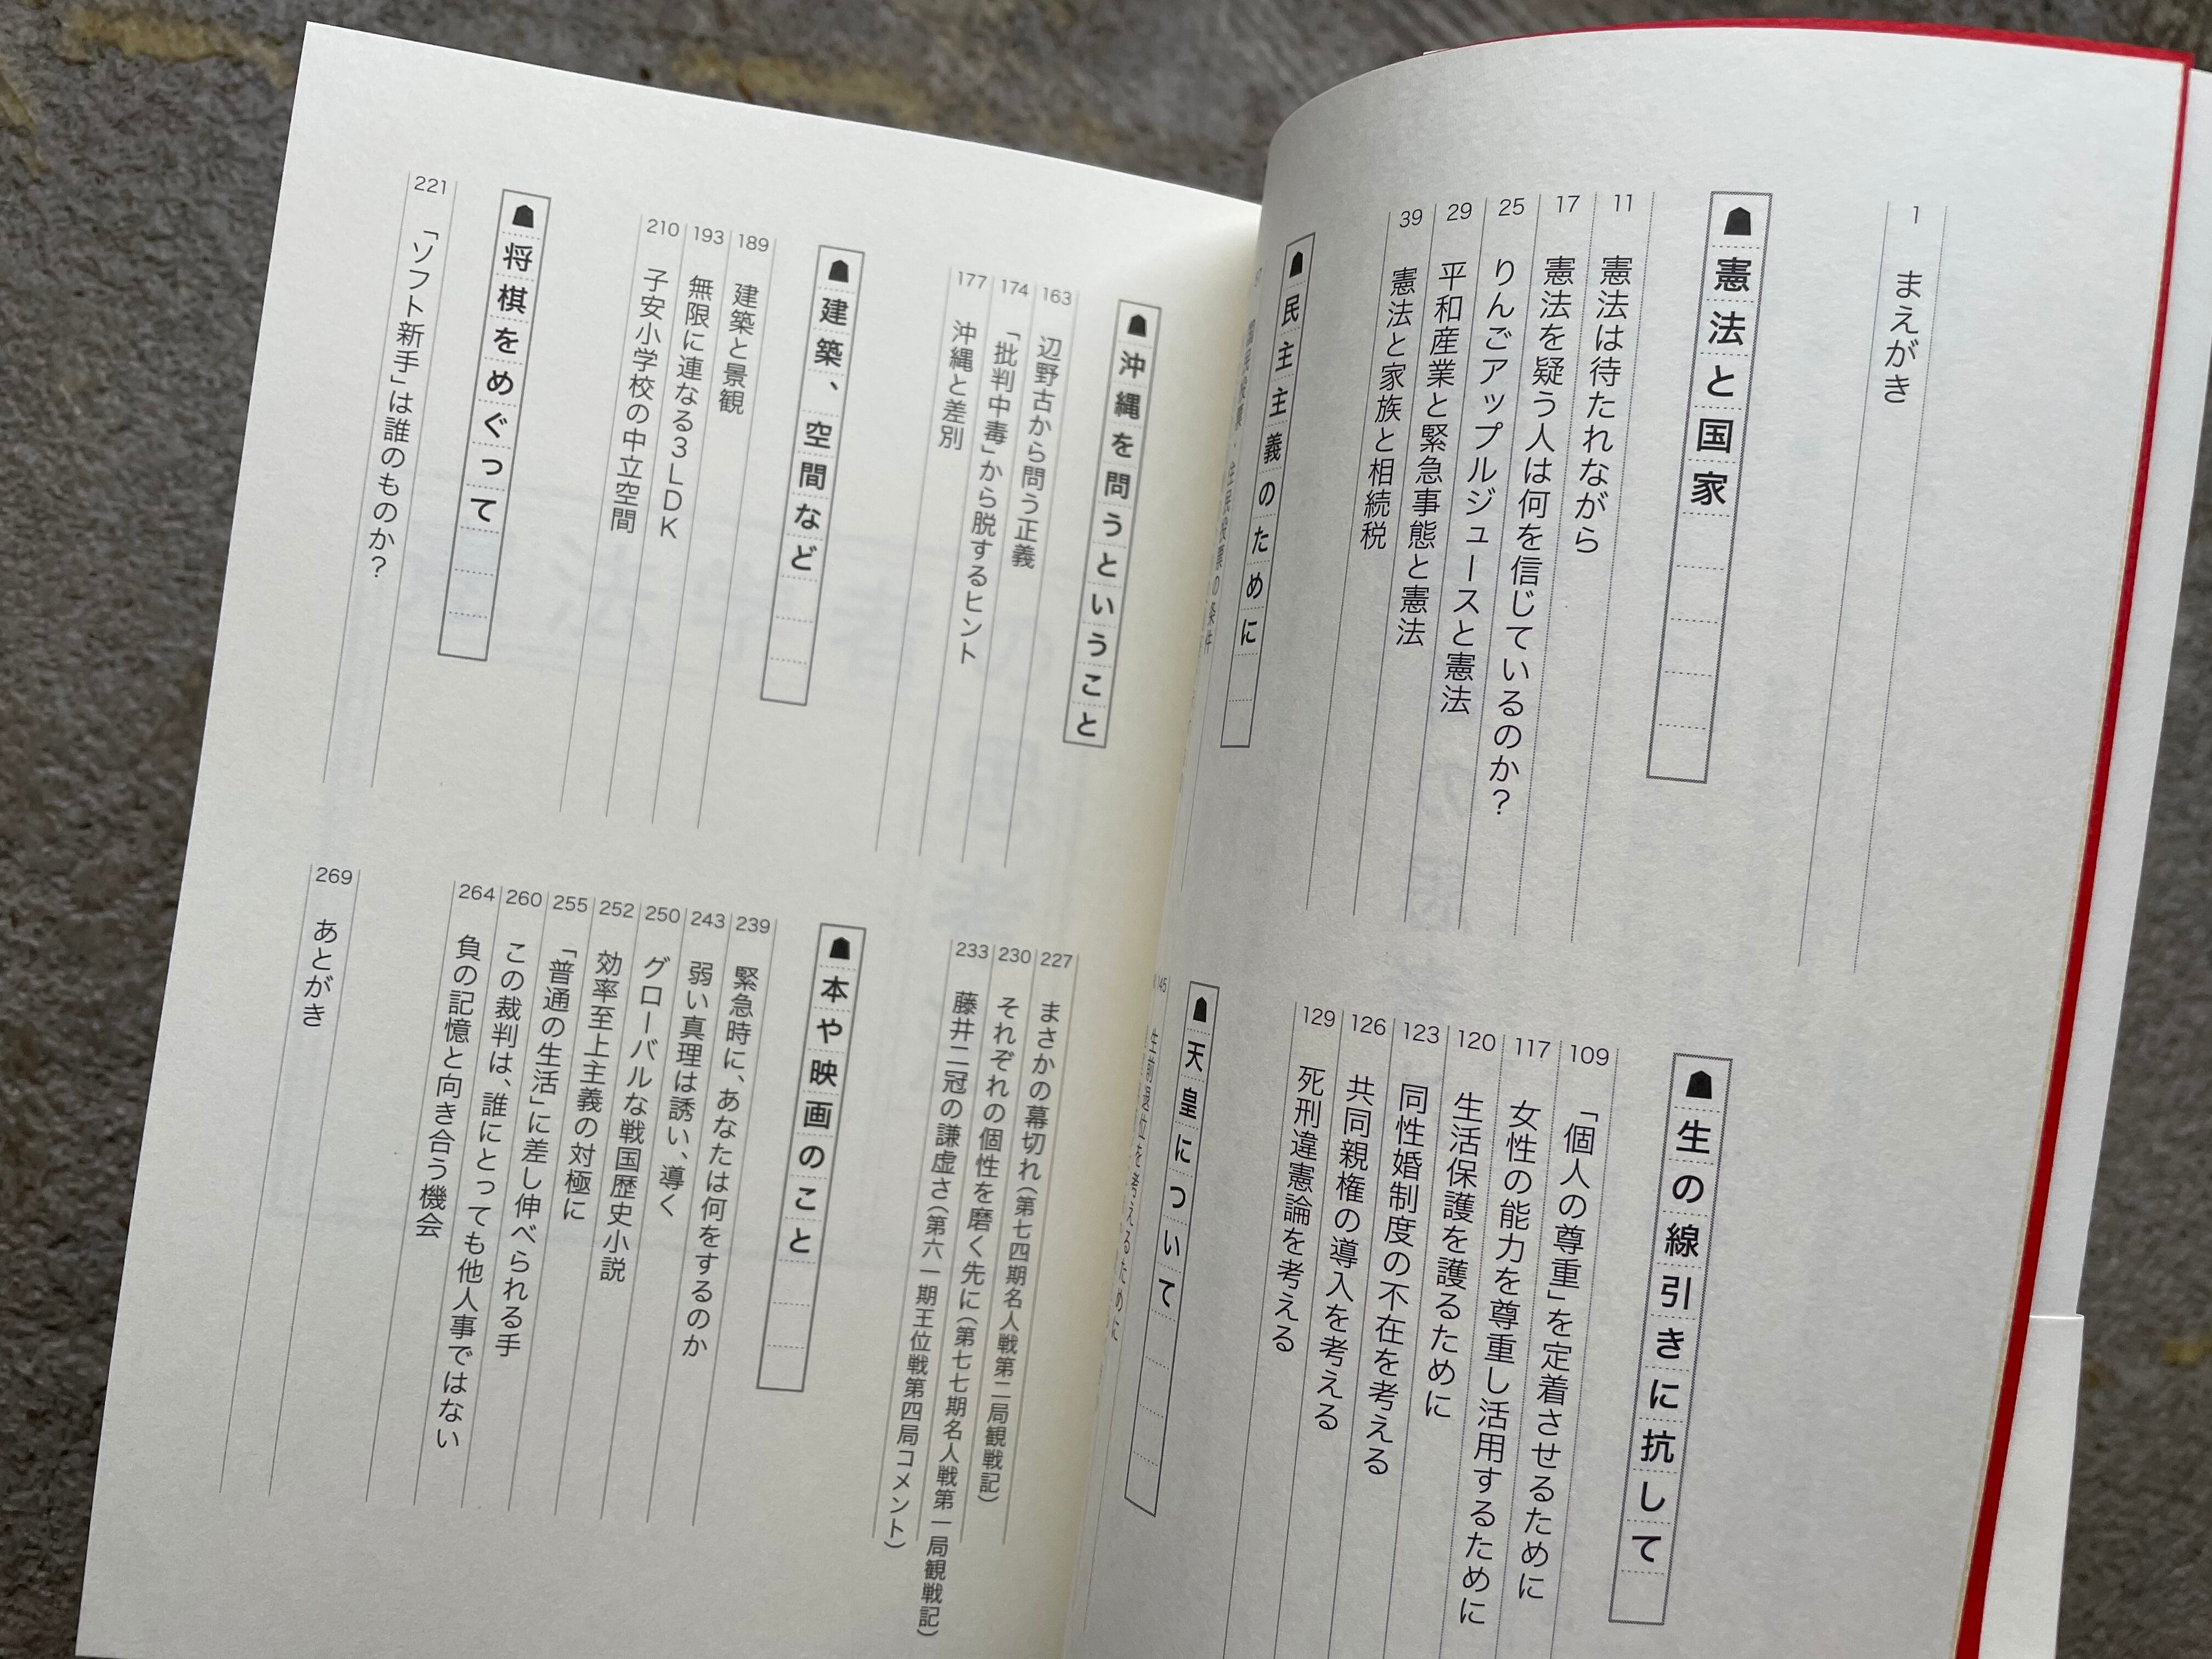 1 まえがき
憲法と国家
11 憲法は待たれながら
17 憲法を疑う人は何を信じているのか？
25 りんごアップルジュースと憲法
29 平和産業と緊急事態と憲法
39 憲法と家族と相続税
民主主義のために
生の線引きに抗して
109 「個人の尊重」を定着させるために
117 女性の能力を尊重し活用するために
120 生活保護を護るために
123 同性婚制度の不在を考える
126 共同親権の導入を考える
129 死刑違憲論を考える
天皇について
145 生前退位を考えるために
沖縄を問うということ
163 辺野古から問う正義
174 「批判中毒」から脱するヒント
177 沖縄と差別
建築、空間など
189 建築と景観
193 無限に連なる3LDK
210 子安小学校の中立空間
将棋をめぐって
221 「ソフト新手」は誰のものか？
227 まさかの幕切れ（第七四期名人戦第二局観戦記）
230 それぞれの個性を磨く先に（第七七期名人戦第一局観戦記）
233 藤井二冠の謙虚さ（第六一期王位戦第四局コメント）
本や映画のこと
239 緊急時に、あなたは何をするのか
243 弱い真理は誘い、導く
250 グローバルな戦国歴史小説
252 効率至上主義の対極に
255 「普通の生活」に差し伸べられる手
260 この裁判は、誰にとっても他人事ではない
264 負の記憶と向き合う機会
269 あとがき